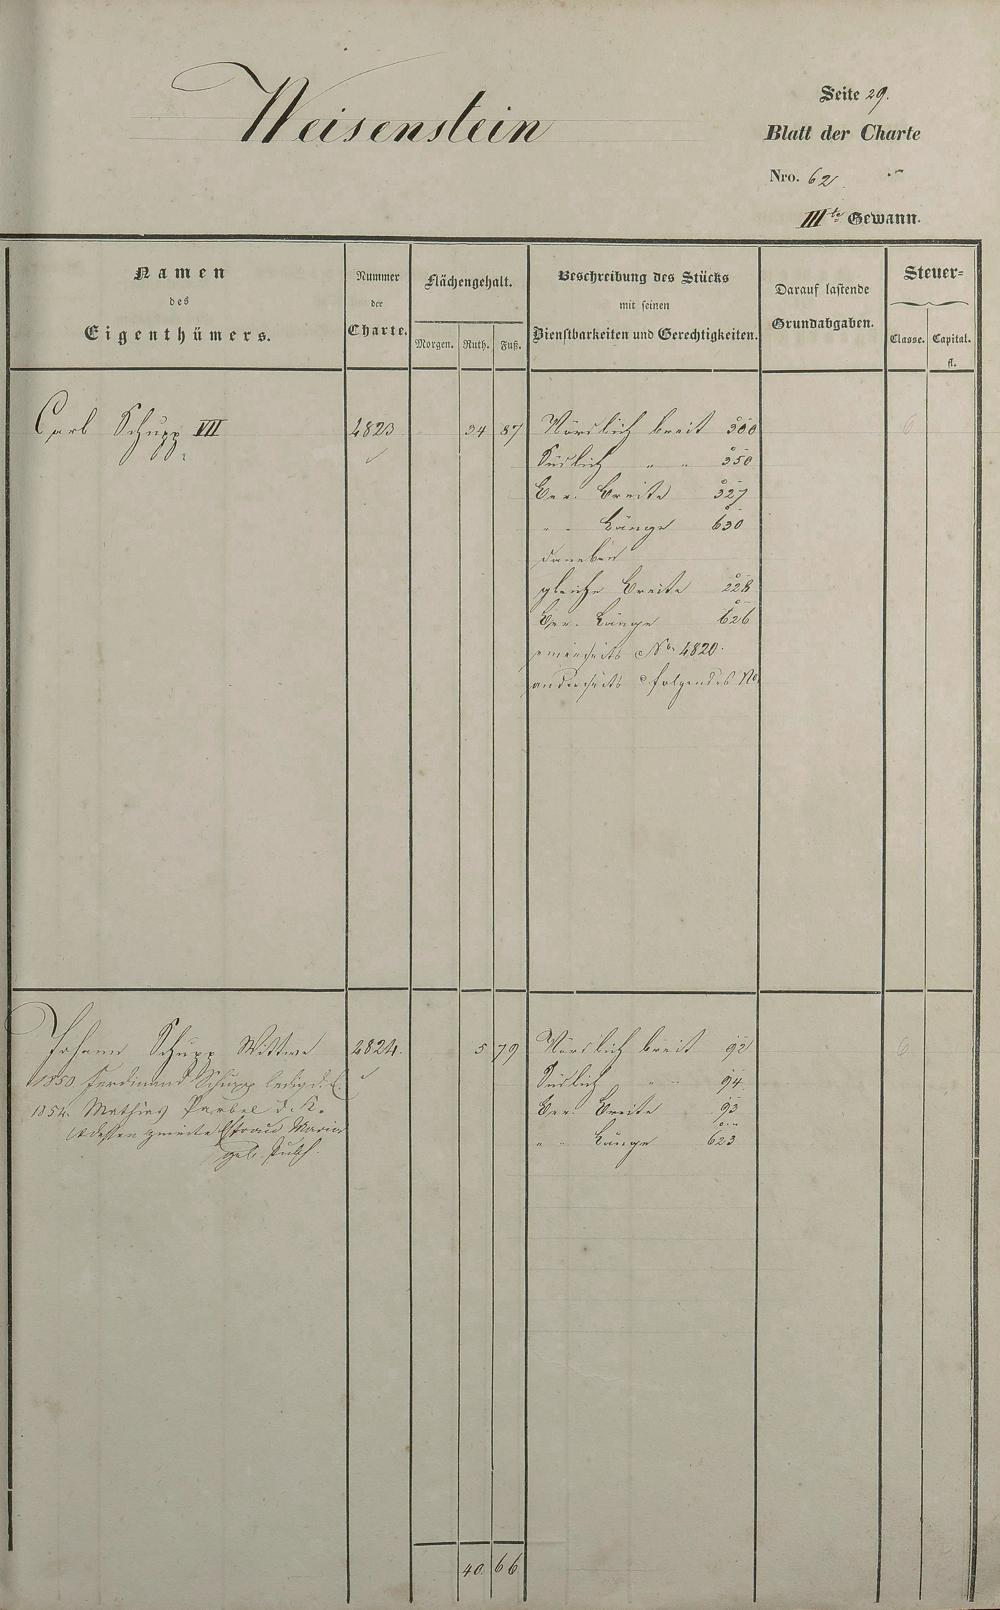 Weisenstein
Seite 29.
Blatt der Charte
Nro. 62
IIIte Gewann.
Namen
des
Eigenthümers.
Nummer
der
Charte.
Flächengehalt.
Morgen. Ruth. Fuß.
Beschreibung des Stücks
mit seinen
Dienstbarkeiten und Gerechtigkeiten.
Darauf lastende
Grundabgaben.
Steuer=
Classe. Capital.
fl.
Carl Schupp VII 4823 34 87 Nördlich breit 300 6
Südlich " " 350
Ber. Breite 327
" " Länge 630
daneben
gleiche Breite 228
Ber. Länge 626
einerseits No 4820.
anderseits folgendes No
Johann Schupp Wittwe 4824. 5 79 Nördlich breit 92 6
1850 Ferdinand Schupp ledig d. E. Südlich " " 94
1854 Mathias d. K. Ber. Breite 93
dessen zweite Ehefrau Maria " " Länge 623
geb.
40 66